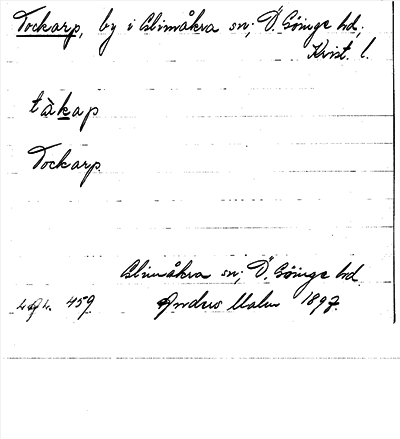 Tockarp, by i Glimåkra sn; Ö. Göinge hd,
Krist. l.
tàkap
Tockarp
Glimåkra sn; Ö. Göinge hd
459 Anders Malm 1897.